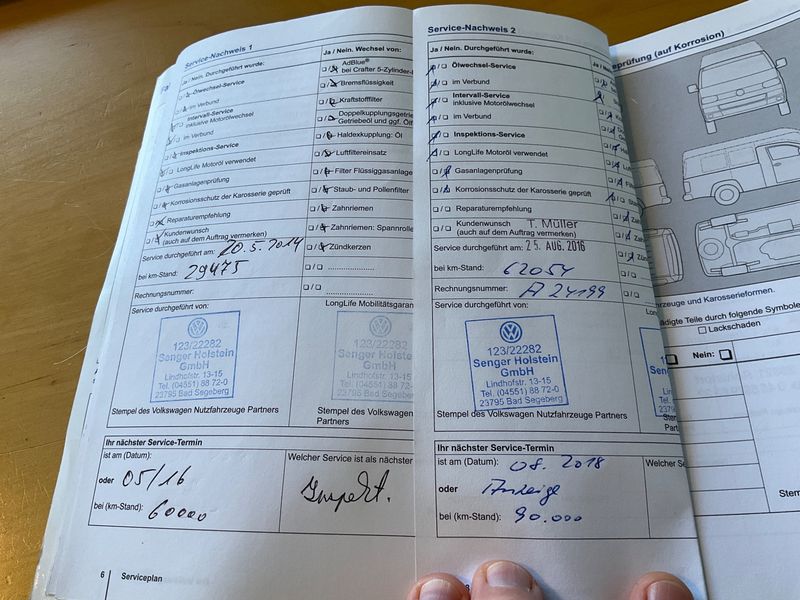 Service-Nachweis 1
Ja / Nein. Durchgeführt wurde:
Ölwechsel-Service
im Verbund
Intervall-Service
inklusive Motorölwechsel
im Verbund
Inspektions-Service
LongLife Motoröl verwendet
Gasanlagenprüfung
Korrosionsschutz der Karosserie geprüft
Reparaturempfehlung
Kundenwunsch
(auch auf dem Auftrag vermerken)
Service durchgeführt am: 20.5.2014
bei km-Stand: 29475
Rechnungsnummer:
Service durchgeführt von:
123/22282
Senger Holstein
GmbH
Lindhofstr. 13-15
Tel. (04551) 88 72-0
23795 Bad Segeberg
Stempel des Volkswagen Nutzfahrzeuge Partners
Ja / Nein. Wechsel von:
AdBlue®
bei Crafter 5-Zylinder-
Bremsflüssigkeit
Kraftstofffilter
Doppelkupplungsgetriebe
Getriebeöl und ggf. Ölf
Haldexkupplung: Öl
Luftfiltereinsatz
Filter Flüssiggasanlage
Staub- und Pollenfilter
Zahnriemen
Zahnriemen: Spannrolle
Zündkerzen
LongLife Mobilitätsgaran
123/22282
Senger Holstein
GmbH
Lindhofstr. 13-15
Tel. (04551) 88 72-0
23795 Bad Segeberg
Stempel des Volkswagen
Partners
Ihr nächster Service-Termin
ist am (Datum):
oder 05/16
bei (km-Stand): 60000
Welcher Service ist als nächster
Inspekt.
6 Serviceplan
Service-Nachweis 2
Ja / Nein. Durchgeführt wurde:
Ölwechsel-Service
im Verbund
Intervall-Service
inklusive Motorölwechsel
im Verbund
Inspektions-Service
LongLife Motoröl verwendet
Gasanlagenprüfung
Korrosionsschutz der Karosserie geprüft
Reparaturempfehlung
Kundenwunsch T. Müller
(auch auf dem Auftrag vermerken)
Service durchgeführt am: 25. AUG. 2016
bei km-Stand: 62054
Rechnungsnummer: A 24199
Service durchgeführt von:
123/22282
Senger Holstein
GmbH
Lindhofstr. 13-15
Tel. (04551) 88 72-0
23795 Bad Segeberg
Stempel des Volkswagen Nutzfahrzeuge Partners
Ja / N
Long
Part
Ihr nächster Service-Termin
ist am (Datum): 08. 2018
oder Anzeige
bei (km-Stand): 90.000
Welcher Se
prüfung (auf Korrosion)
rzeuge und Karosserieformen.
ädigte Teile durch folgende Symbole
Lackschaden
Nein:
Stem